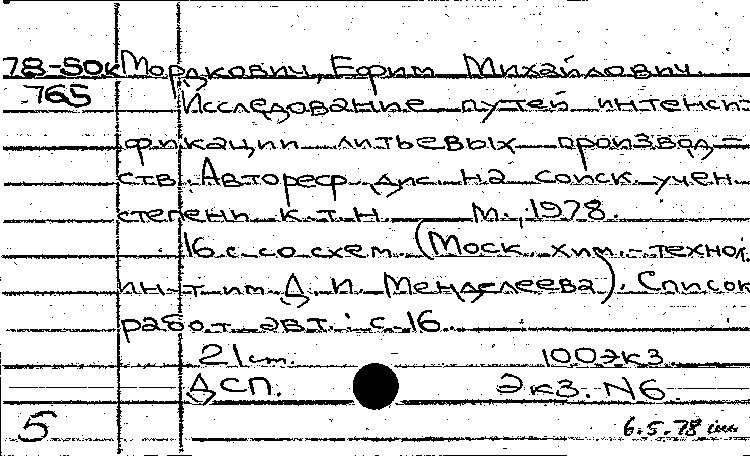 78-50к Мордкович, Ефим Михайлович
765 Исследование путей интенси-
фикации литьевых производ=
ств. Автореф. дис. на соиск. учен.
степени к.т.н. М., 1978.
16 с. со схем. (Моск. хим.-технол.
ин-т им. Д. И. Менделеева). Список
работ авт.: с. 16
21 см. 100 экз
ДСП. Экз. N6.
5 6.5.78